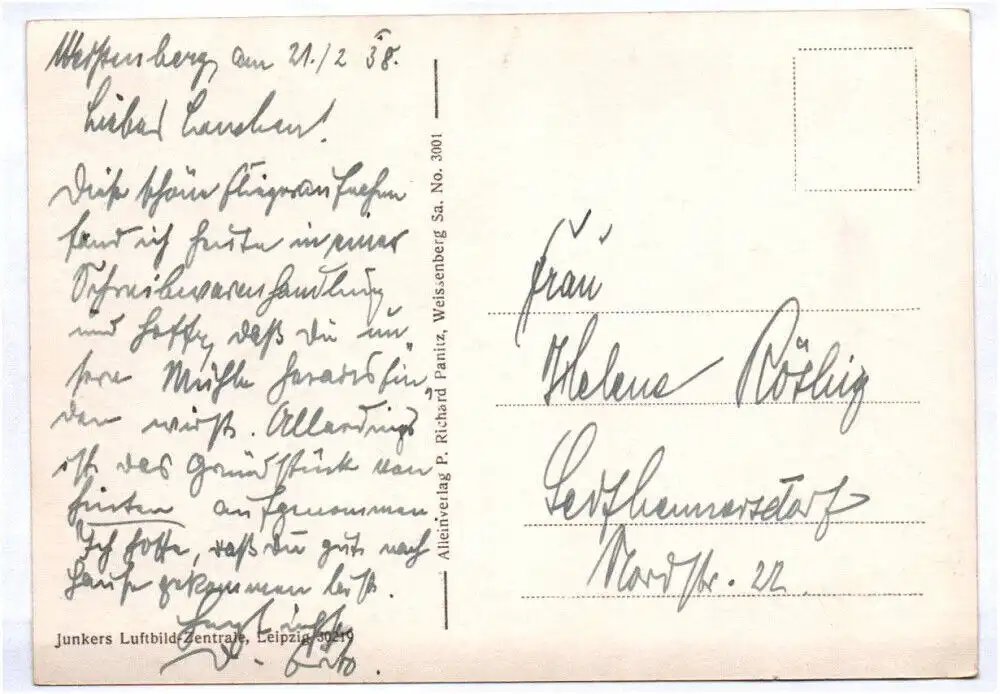 Weißenberg, am 21./2 38.
Liebes Lenchen!
Diese schöne Fliegeraufnahme
fand ich heute in einer
Schreibwarenhandlung
und hoffe, daß Du un„
sere Mühle herausfin„
den wirst. Allerdings
ist das Grundstück von
hinten aufgenommen.
Ich hoffe, daß Du gut nach
Hause gekommen bist.
Herzlichst
D. Otto.
Junkers Luftbild-Zentrale, Leipzig 30219
Alleinverlag P. Richard Panitz, Weissenberg Sa. No. 3001
Frau
Helene Röthig
Seifhennersdorf
Nordstr. 22.